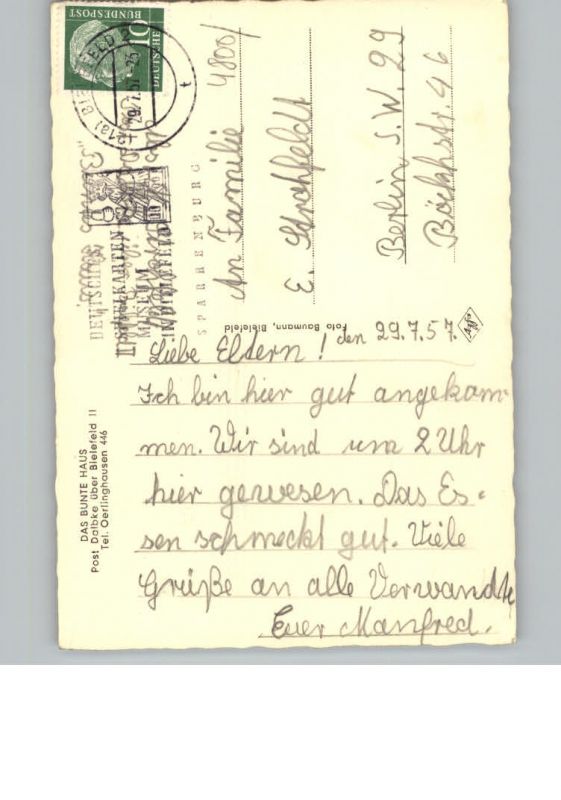 DEUTSCHE
BUNDESPOST
10
(21a) BIELEFELD 2
29.7.57
t
DEUTSCHES
SPIELKARTEN
MUSEUM
IN BIELEFELD
SPARRENBURG
4800/
An Familie
E. Strohfeldt
Berlin S.W. 29
Böckhstr. 46
Foto Baumann, Bielefeld
Agfa
DAS BUNTE HAUS
Post Dalbke über Bielefeld II
Tel. Oerlinghausen 446
den 29.7.57.
Liebe Eltern!
Ich bin hier gut angekom-
men. Wir sind um 2 Uhr
hier gewesen. Das Es-
sen schmeckt gut. Viele
Grüße an alle Verwandte
Euer Manfred.